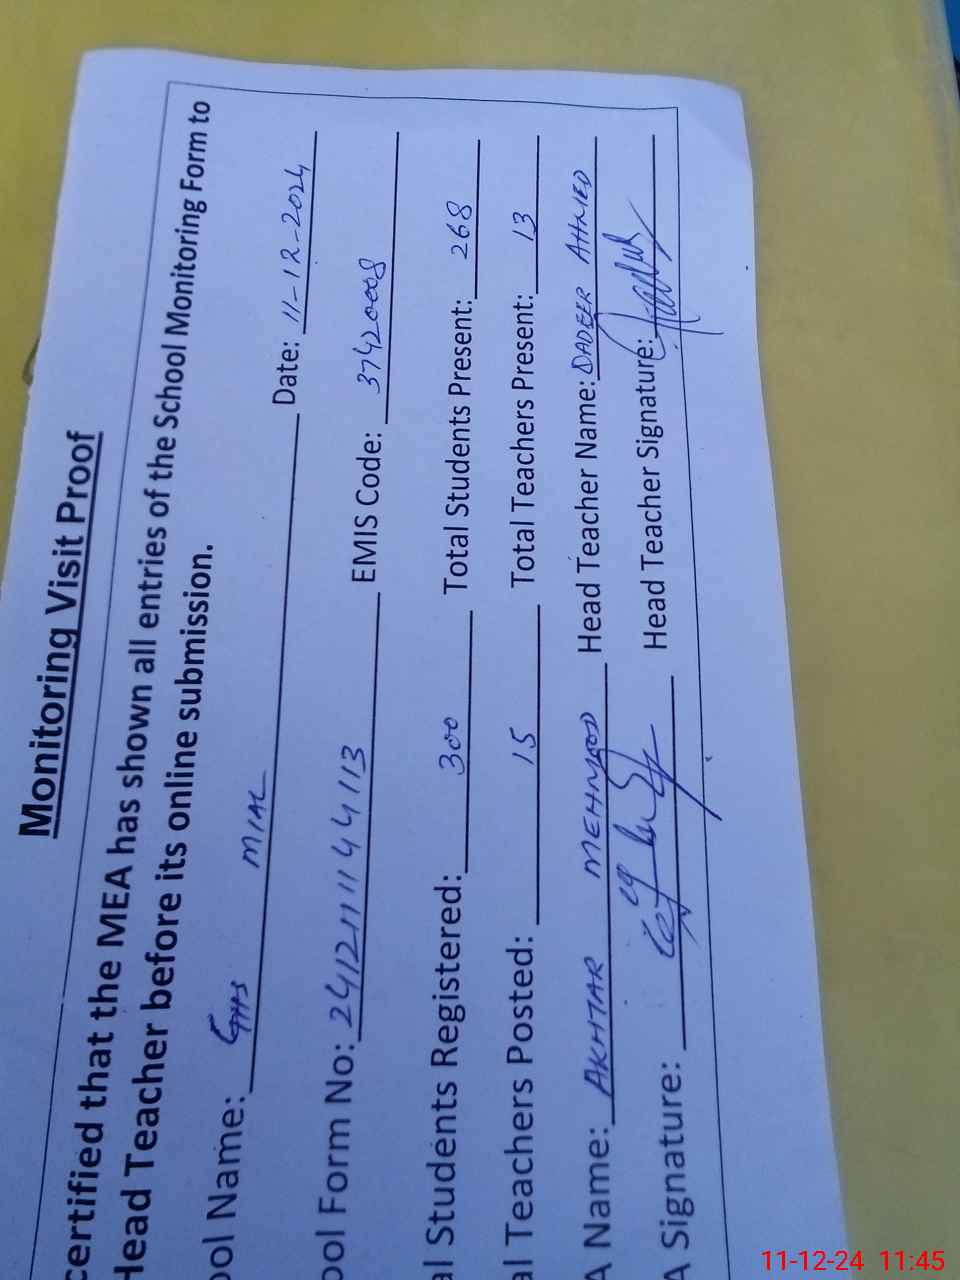 Monitoring Visit Proof
certified that the MEA has shown all entries of the School Monitoring Form to
Head Teacher before its online submission.
ool Name: GHS MIAL Date: 11-12-2024
ool Form No: 241211144113 EMIS Code: 37420008
al Students Registered: 300 Total Students Present: 268
al Teachers Posted: 15 Total Teachers Present: 13
A Name: AKHTAR MEHMOOD Head Teacher Name: AHMED
A Signature: Head Teacher Signature:
11-12-24 11:45